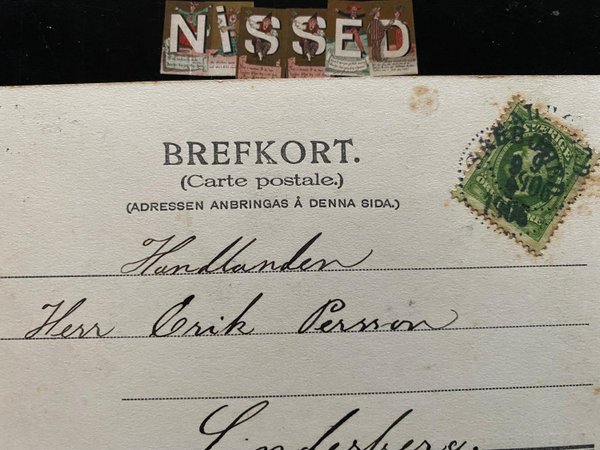 NISSED
BREFKORT.
(Carte postale.)
(ADRESSEN ANBRINGAS Å DENNA SIDA.)
SVERIGE
Handlanden
Herr Erik Persson
Linderberg.